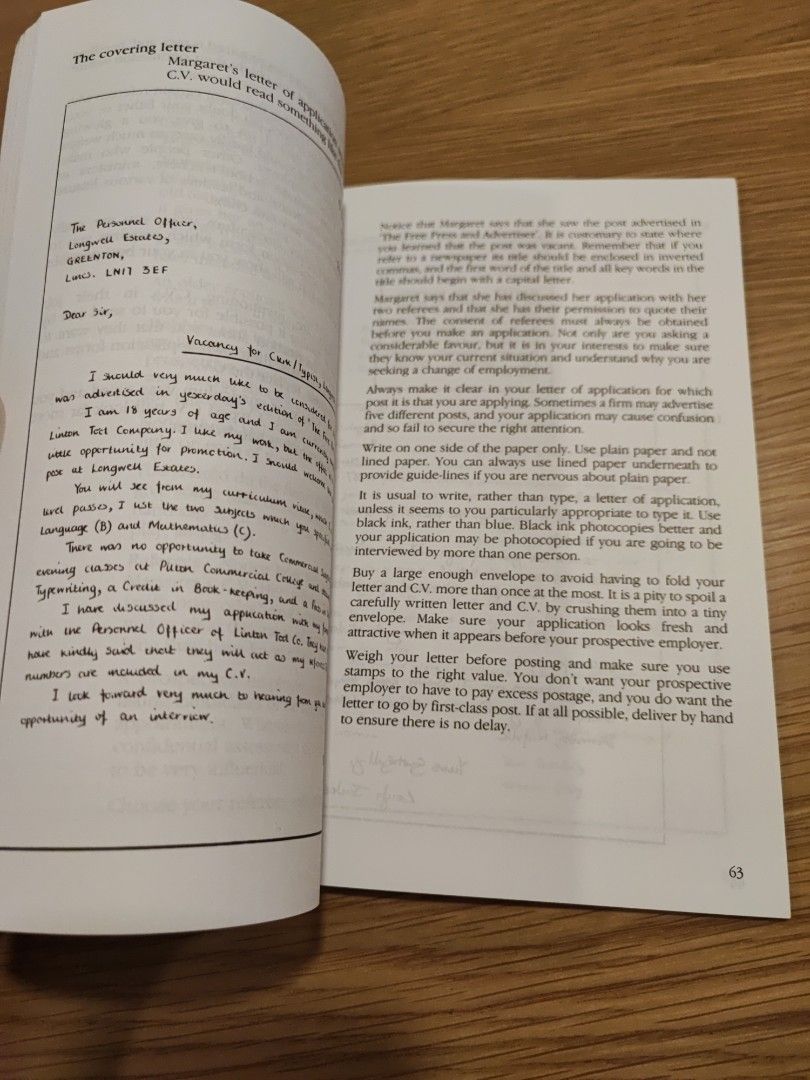 The covering letter
Margaret's letter of application
C.V. would read something like
The Personnel Officer,
Longwell Estates,
GREENTON,
Lincs. LN17 3EF
Dear Sir,
Vacancy for Clerk/Typist,
I should very much like to be considered for
was advertised in yesterday's edition of 'The Free
I am 18 years of age and I am currently
Linton Tool Company. I like my work, but the office
little opportunity for promotion. I should welcome
post at Longwell Estates.
You will see from my curriculum vitae,
level passes, I list the two subjects which you
Language (B) and Mathematics (C).
There was no opportunity to take Commercial
evening classes at Commercial College and
Typewriting, a Credit in Book-keeping, and a Pass in
I have discussed my application with my
with the Personnel Officer of Linton Tool Co. They
have kindly said that they will act as my
numbers are included in my C.V.
I look forward very much to hearing from
opportunity of an interview.
Notice that Margaret says that she saw the post advertised in
'The Free Press and Advertiser'. It is customary to state where
you learned that the post was vacant. Remember that if you
refer to a newspaper its title should be enclosed in inverted
commas, and the first word of the title and all key words in the
title should begin with a capital letter.
Margaret says that she has discussed her application with her
two referees and that she has their permission to quote their
names. The consent of referees must always be obtained
before you make an application. Not only are you asking a
considerable favour, but it is in your interests to make sure
they know your current situation and understand why you are
seeking a change of employment.
Always make it clear in your letter of application for which
post it is that you are applying. Sometimes a firm may advertise
five different posts, and your application may cause confusion
and so fail to secure the right attention.
Write on one side of the paper only. Use plain paper and not
lined paper. You can always use lined paper underneath to
provide guide-lines if you are nervous about plain paper.
It is usual to write, rather than type, a letter of application,
unless it seems to you particularly appropriate to type it. Use
black ink, rather than blue. Black ink photocopies better and
your application may be photocopied if you are going to be
interviewed by more than one person.
Buy a large enough envelope to avoid having to fold your
letter and C.V. more than once at the most. It is a pity to spoil a
carefully written letter and C.V. by crushing them into a tiny
envelope. Make sure your application looks fresh and
attractive when it appears before your prospective employer.
Weigh your letter before posting and make sure you use
stamps to the right value. You don't want your prospective
employer to have to pay excess postage, and you do want the
letter to go by first-class post. If at all possible, deliver by hand
to ensure there is no delay.
63